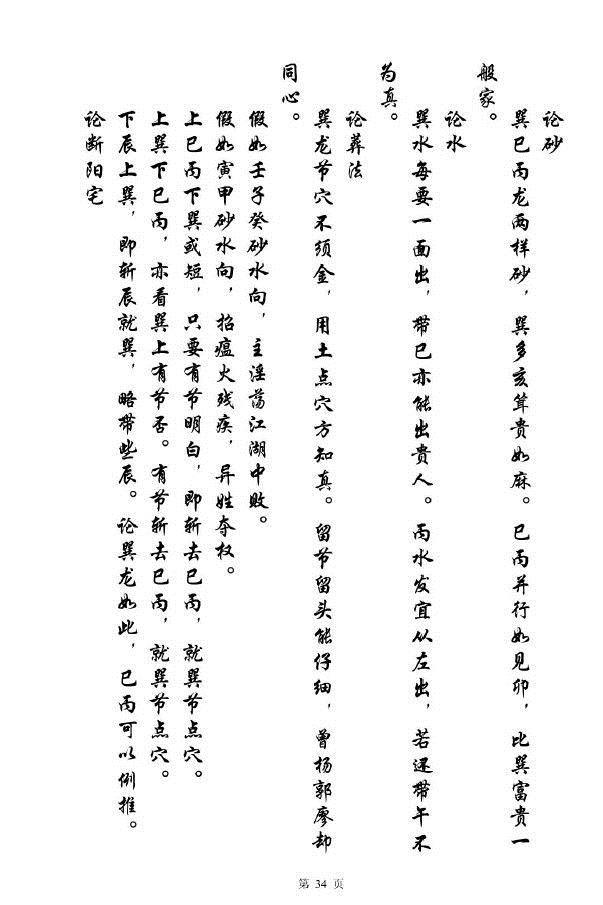 论砂
巽巳丙龙两样砂，巽多亥耸贵如麻。巳丙并行如见卯，比巽富贵一
般家。
论水
巽水每要一面出，带巳亦能出贵人。丙水发宜从左出，若还带午不
为真。
论葬法
巽龙节穴不须金，用土点穴方知真。留节留头能仔细，曾杨郭廖却
同心。
假如壬子癸砂水向，主淫荡江湖中败。
假如寅甲砂水向，招瘟火残疾，异姓夺权。
上巳丙下巽或短，只要有节明白，即斩去巳丙，就巽节点穴。
上巽下巳丙，亦看巽上有节否。有节斩去巳丙，就巽节点穴。
下辰上巽，即斩辰就巽，略带些辰。论巽龙如此，巳丙可以例推。
论断阳宅
第 34 页